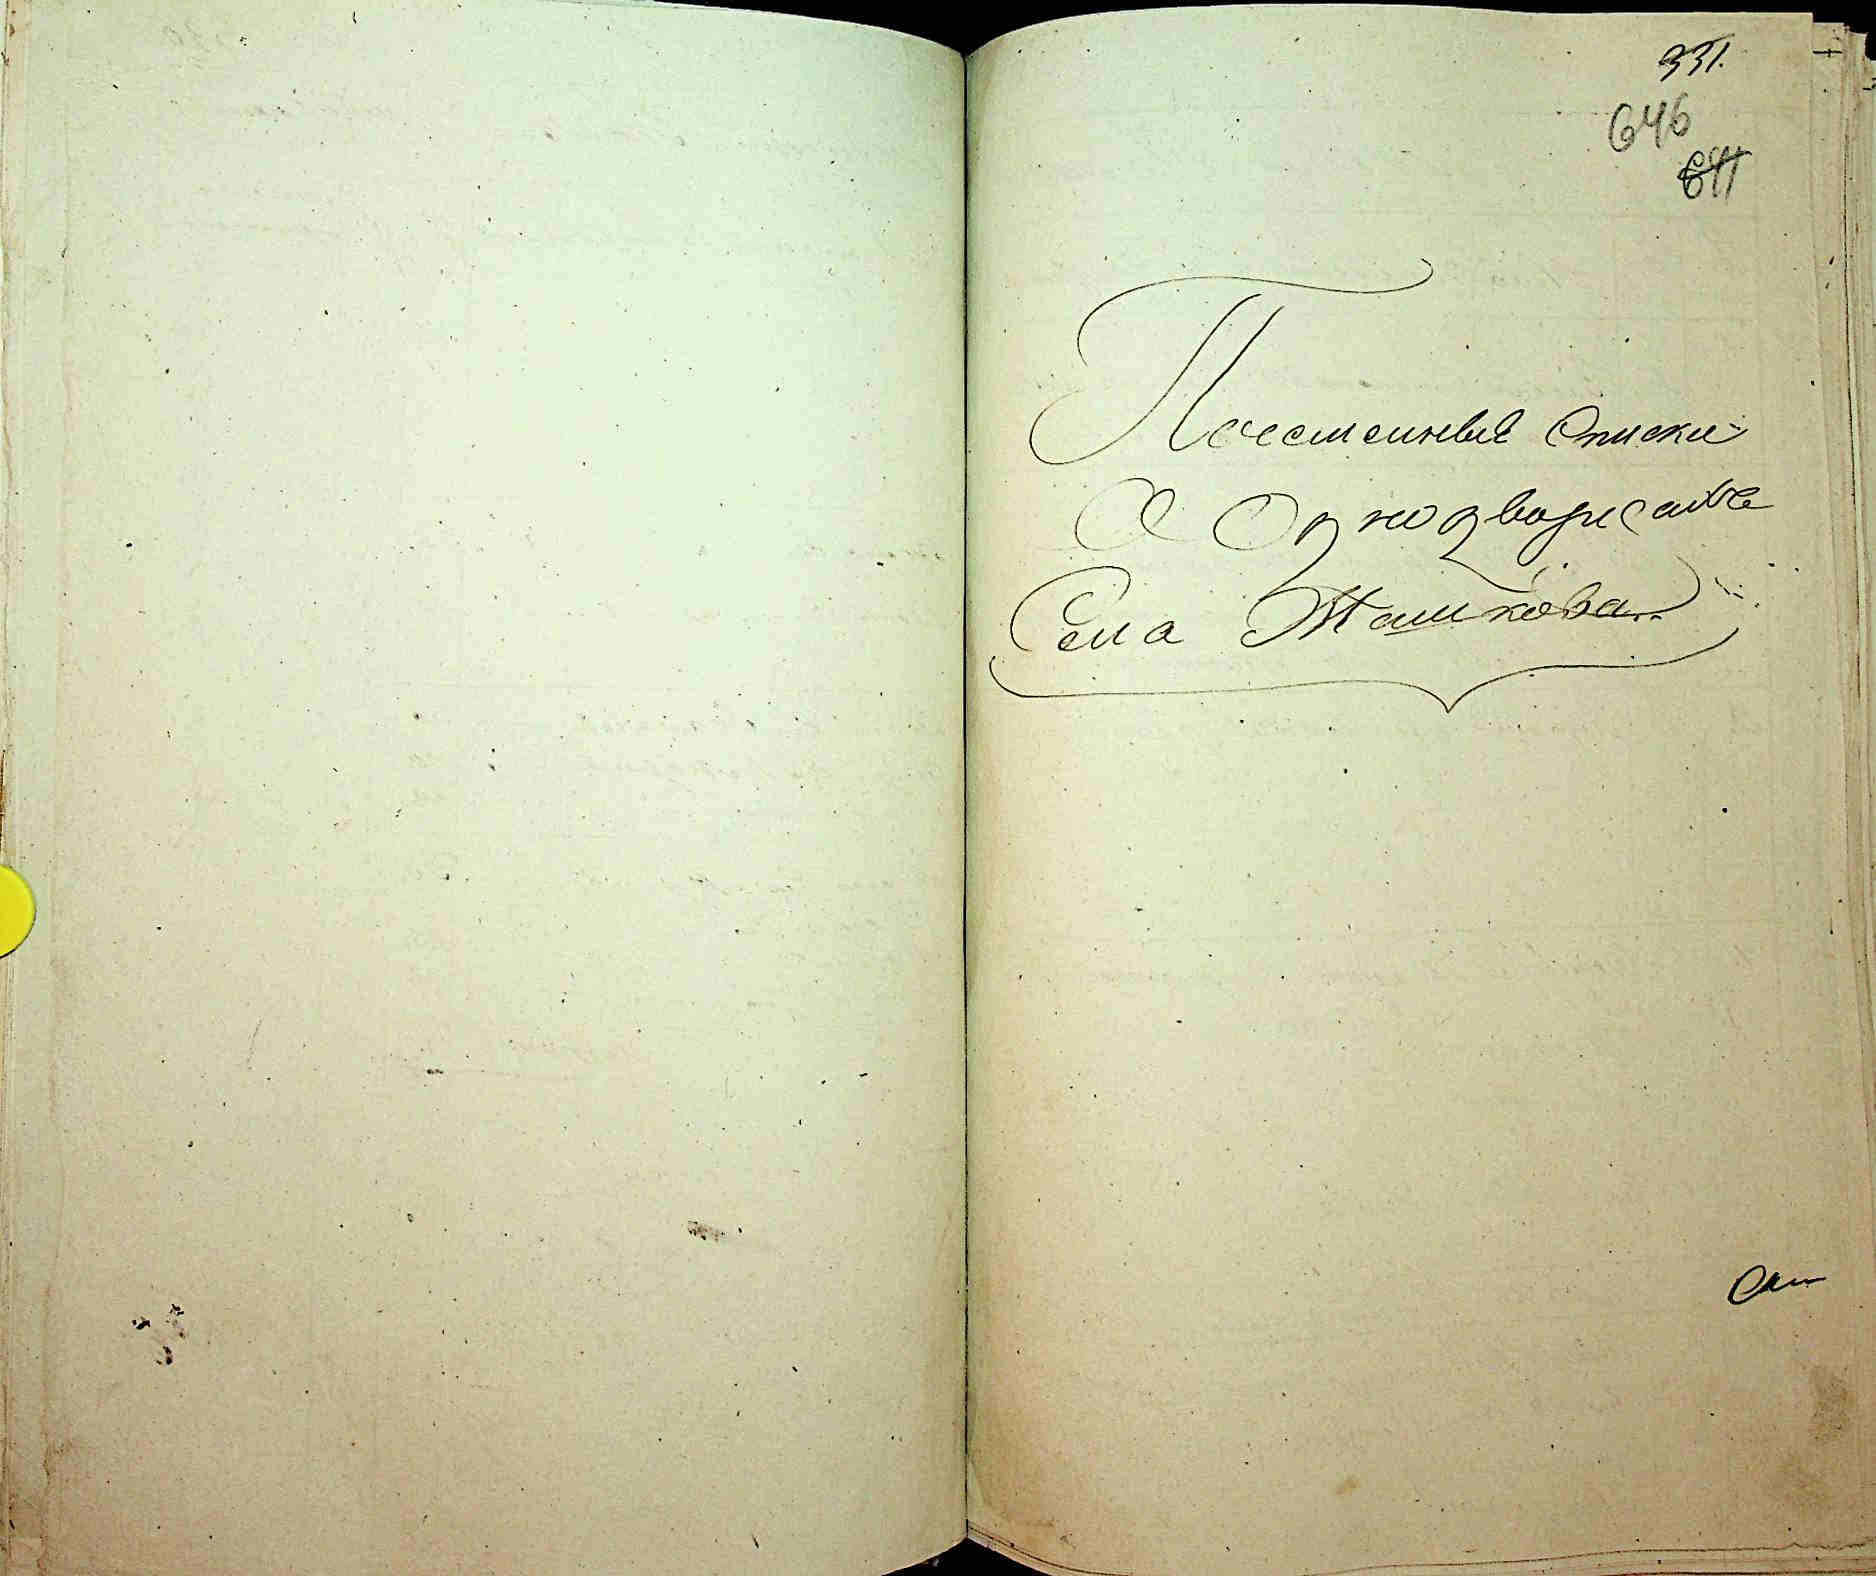 331.
646
641
Посемейные Списки
О Однодворцахъ
Села Машкова